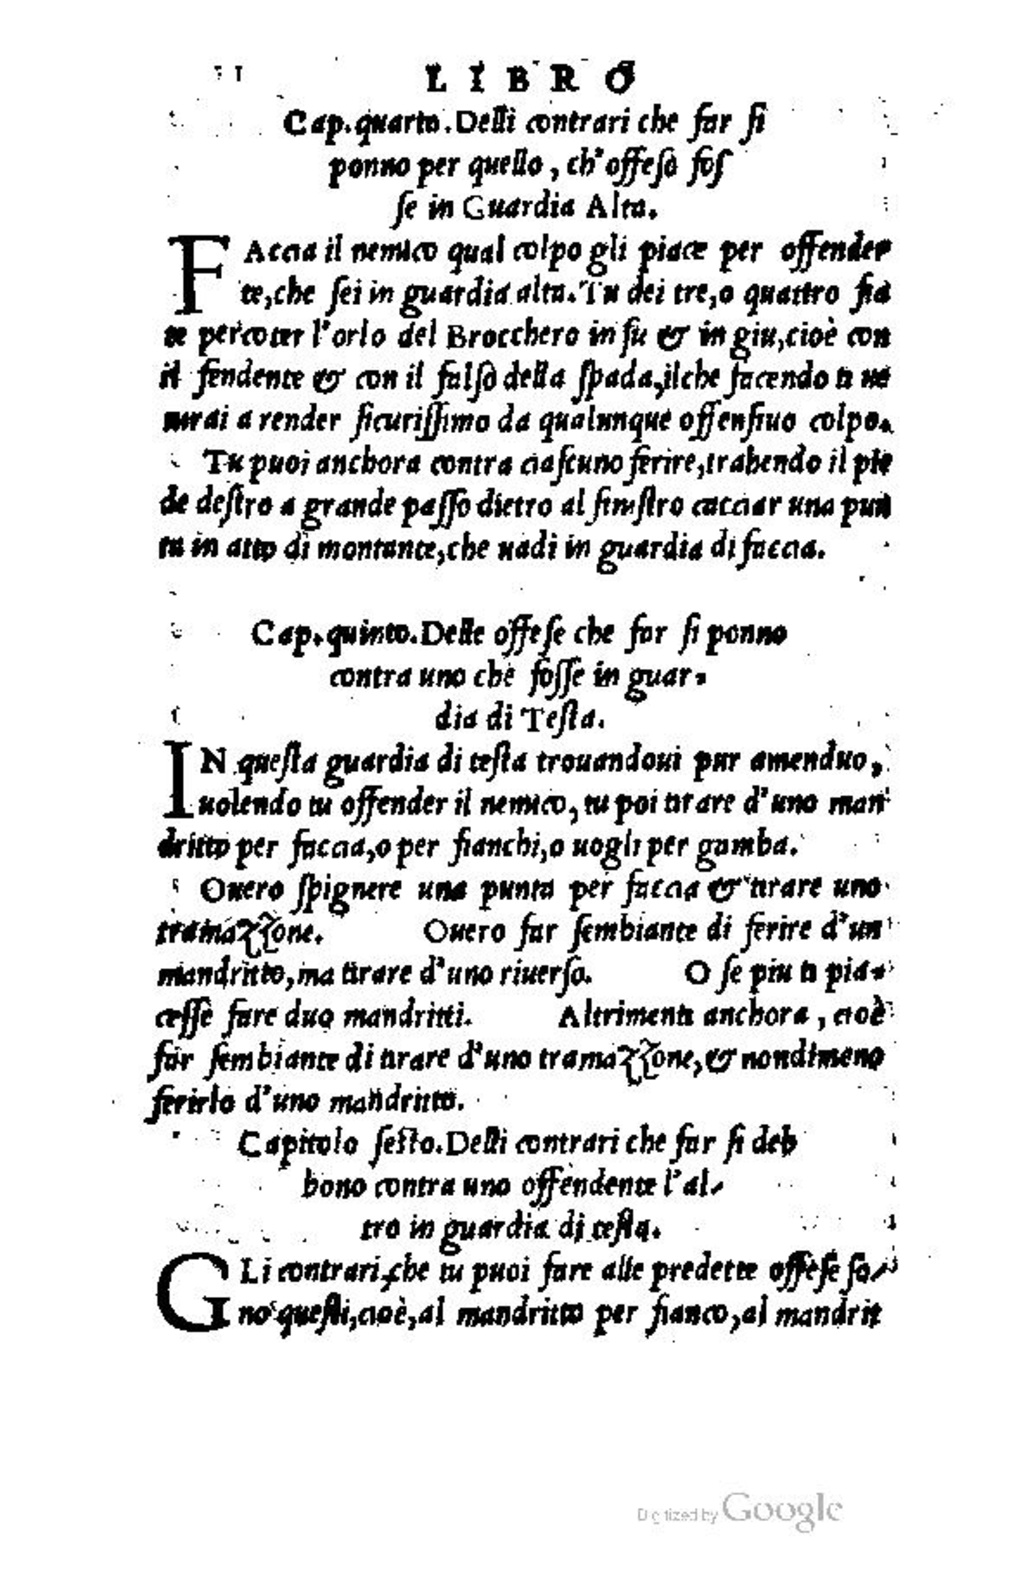 LIBRO
Cap.quarto.Delli contrari che far ſi
ponno per quello, ch'offeſo foſ
ſe in Guardia Alta.
FAccia il nemico qual colpo gli piace per offender
te,che ſei in guardia alta.Tu dei tre,o quattro fia
te percoter l'orlo del Brocchero in ſu & in giu,cioè con
il fendente & con il falſo della ſpada,ilche facendo ti ue
nirai a render ſicuriſſimo da qualunque offenſiuo colpo.
Tu puoi anchora contra ciaſcuno ferire,trahendo il pie
de deſtro a grande paſſo dietro al ſiniſtro cacciar una pun
ta in atto di montante,che uadi in guardia di faccia.
Cap.quinto.Delle offeſe che far ſi ponno
contra uno che foſſe in guar-
dia di Teſta.
IN queſta guardia di teſta trouandoui pur amenduo,
uolendo tu offender il nemico, tu poi tirare d'uno man
dritto per faccia,o per fianchi,o uogli per gamba.
Ouero ſpignere una punta per faccia & tirare uno
tramazzone. Ouero far ſembiante di ferire d'un
mandritto,ma tirare d'uno riuerſo. O ſe piu ti pia-
ceſſe fare duo mandritti. Altrimenti anchora, cioè
far ſembiante di tirare d'uno tramazzone,& nondimeno
ferirlo d'uno mandritto.
Capitolo ſeſto.Delli contrari che far ſi deb
bono contra uno offendente l'al-
tro in guardia di teſta.
GLi contrari,che tu puoi fare alle predette offeſe ſo-
no queſti,cioè,al mandritto per fianco,al mandrit
Digitized by Google